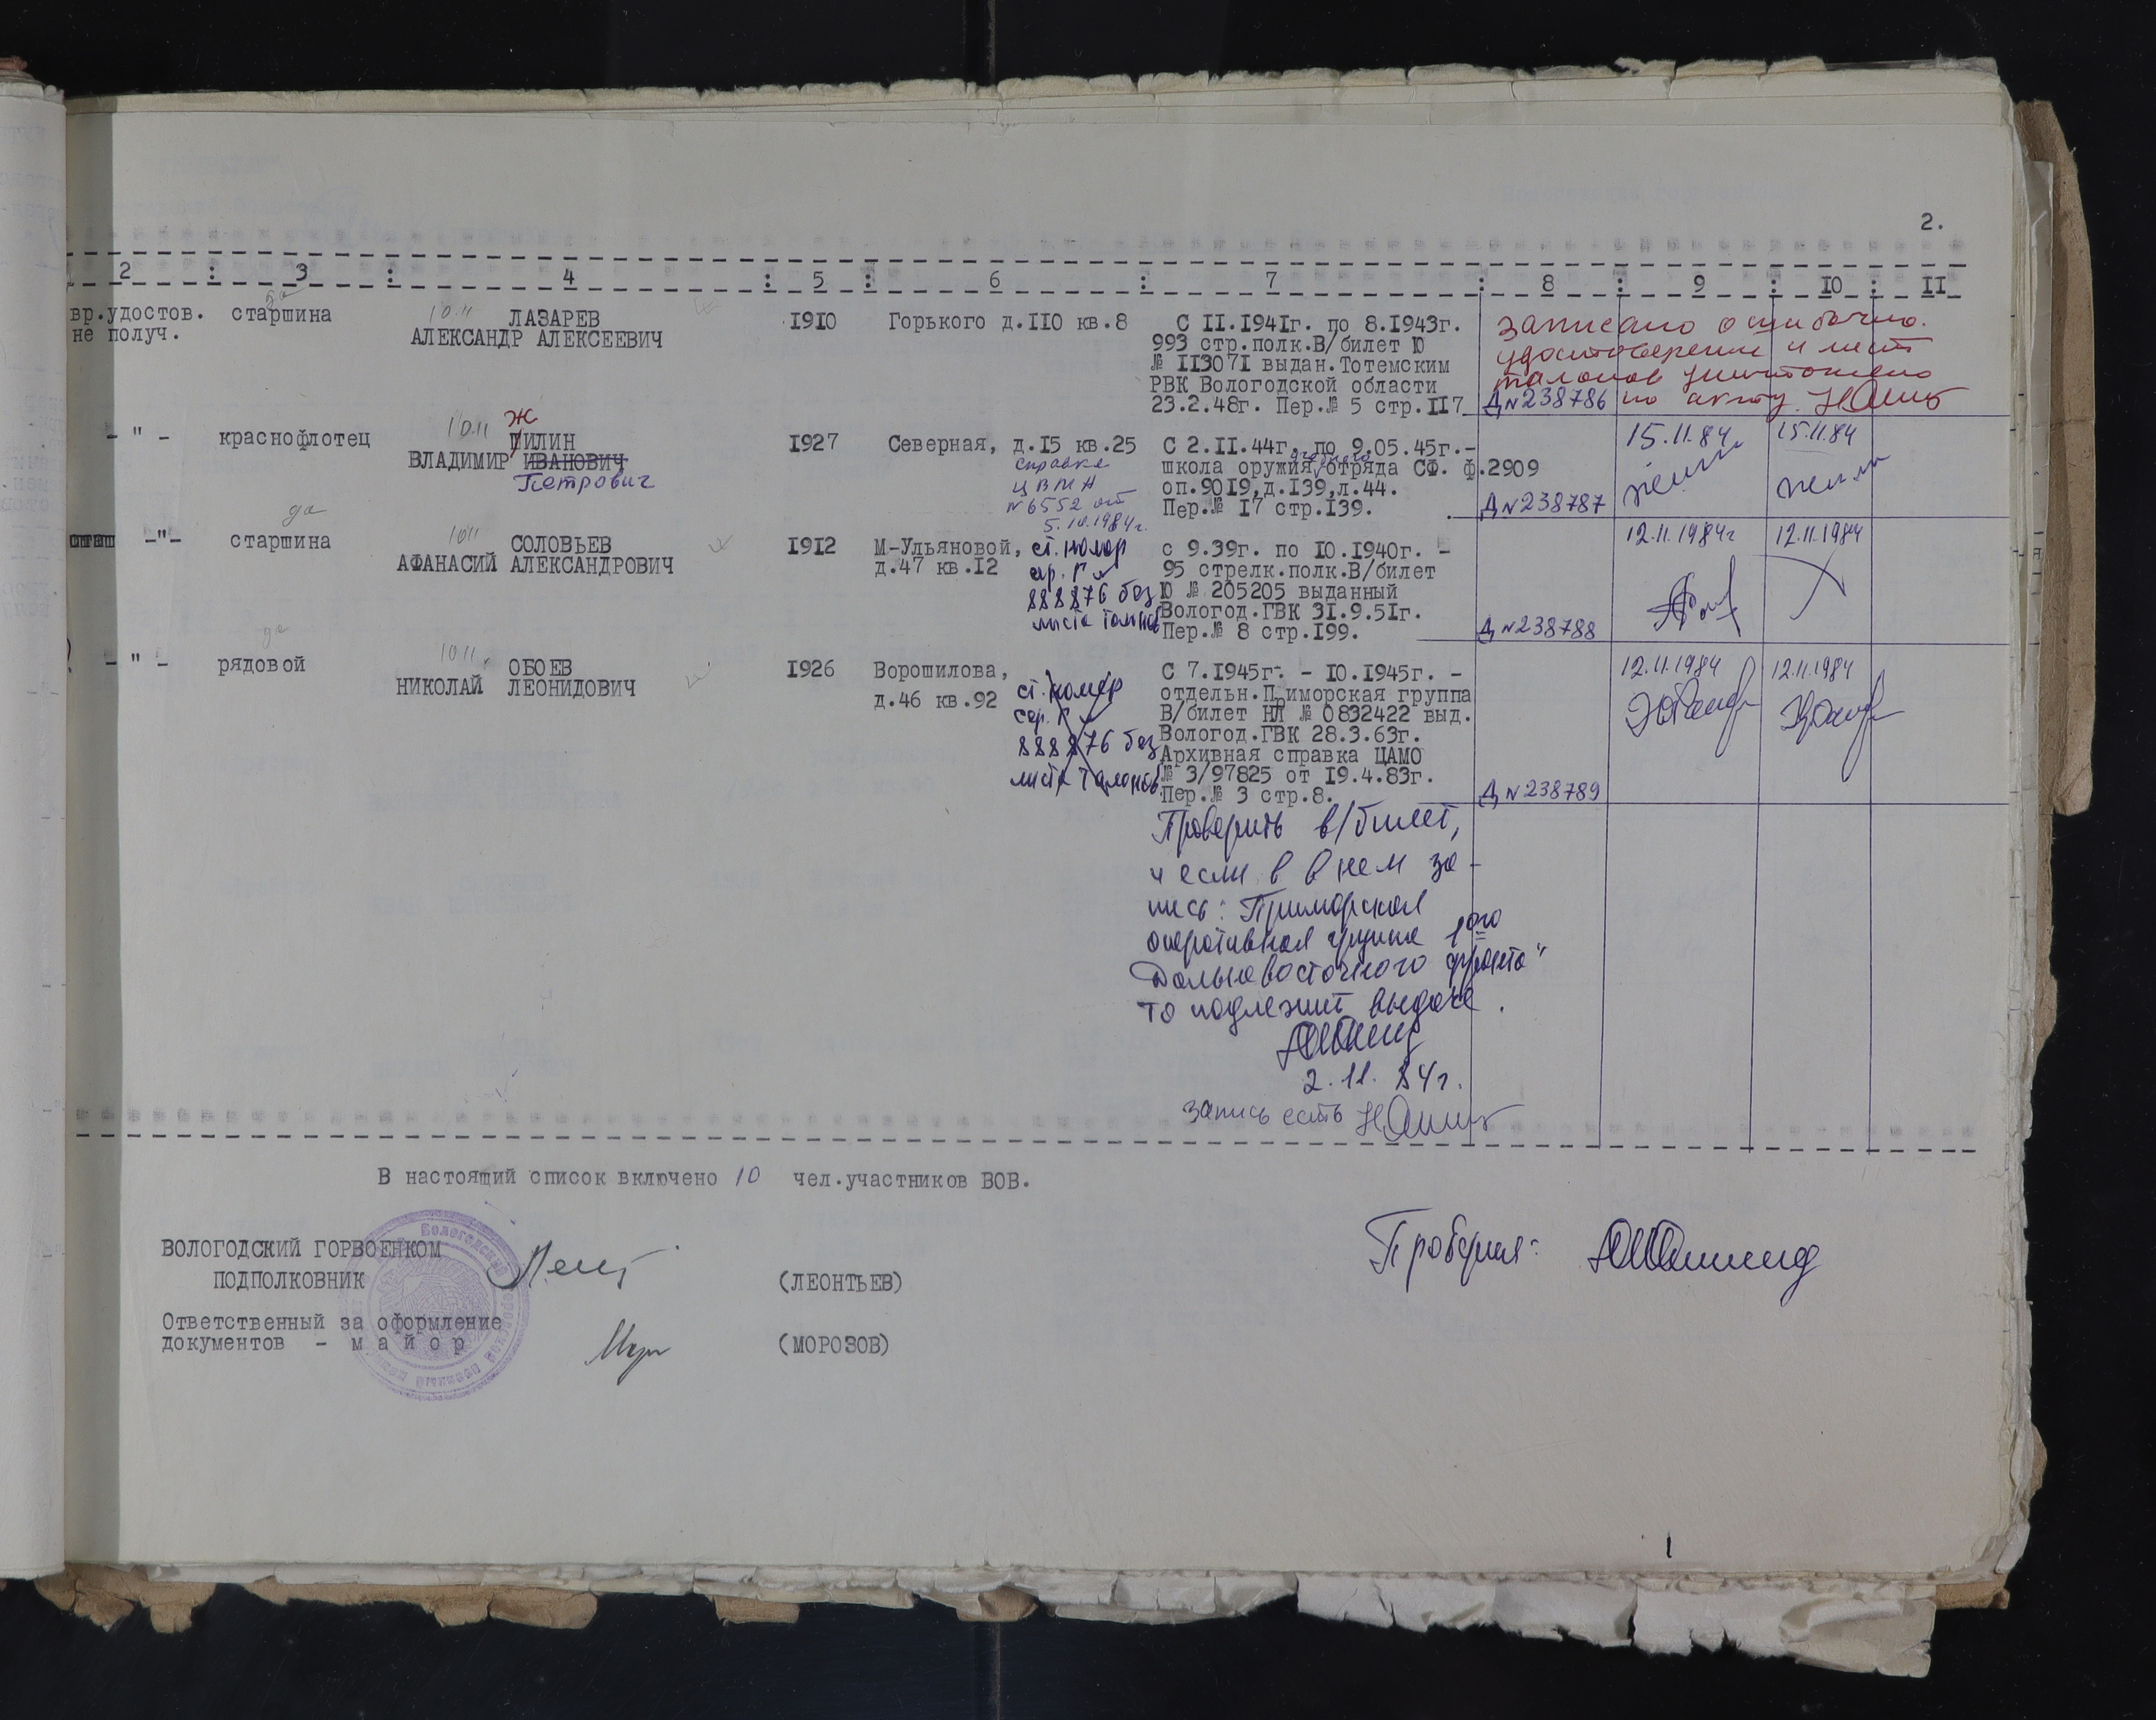 2.
2 : 3 : 4 : 5 : 6 : 7 : 8 : 9 : 10 : II
вр.удостов. старшина 10.11 ЛАЗАРЕВ 1910 Горького д.110 кв.8 С II.1941г. по 8.1943г.
не получ. АЛЕКСАНДР АЛЕКСЕЕВИЧ 993 стр.полк.В/билет Ю
№ 113071 выдан.Тотемским
РВК Вологодской области
23.2.48г. Пер.№ 5 стр.117
Записано ошибочно.
удостоверение и лист
талонов уничтожено
Д № 238786 по акту.
- " - краснофлотец 10.11 Ж ПИЛИН 1927 Северная, д.15 кв.25 С 2.II.44г. по 9.05.45г.-
ВЛАДИМИР ИВАНОВИЧ школа оружия учебного отряда СФ. ф.2909
Петрович оп.9019,д.139,л.44.
Пер.№ 17 стр.139.
справка
ЦВМА
№ 6552 от
5.10.1984г.
Д № 238787 15.11.84г 15.11.84
-"- да старшина 1011 СОЛОВЬЕВ 1912 М-Ульяновой, с 9.39г. по 10.1940г. -
АФАНАСИЙ АЛЕКСАНДРОВИЧ д.47 кв.12 95 стрелк.полк.В/билет
Ю № 205205 выданный
Вологод.ГВК 31.9.51г.
Пер.№ 8 стр.199.
ст. номер
сер. Г
888876 без
листа талонов
Д № 238788 12.11.1984г 12.11.1984
- " - да рядовой 1011. ОБОЕВ 1926 Ворошилова, С 7.1945г. - 10.1945г. -
НИКОЛАЙ ЛЕОНИДОВИЧ д.46 кв.92 отдельн.Приморская группа
В/билет НЛ № 0832422 выд.
Вологод.ГВК 28.3.63г.
Архивная справка ЦАМО
№ 3/97825 от 19.4.83г.
Пер.№ 3 стр.8.
ст. номер
сер. Г
888876 без
листа талонов
Д № 238789 12.11.1984 12.11.1984
Проверить в/билет,
и если в в нем за-
пись: Приморская
оперативная группа 1ого
Дальневосточного фронта"
то подлежит выдаче.
2.11.84г.
запись есть
В настоящий список включено 10 чел.участников ВОВ.
ВОЛОГОДСКИЙ ГОРВОЕНКОМ
ПОДПОЛКОВНИК (ЛЕОНТЬЕВ)
Ответственный за оформление
документов - м а й о р (МОРОЗОВ)
Проверил: